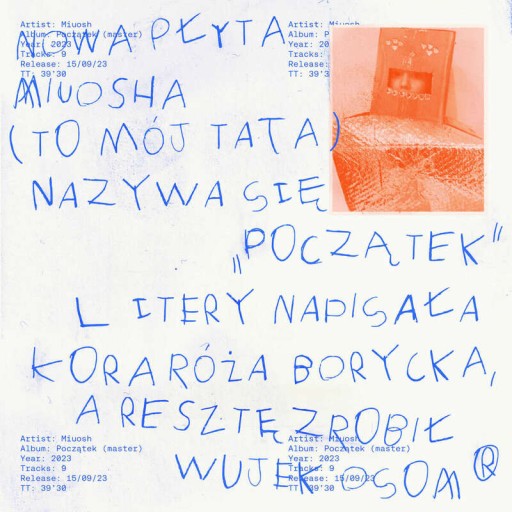 Artist: Miuosh
Album: Początek (master)
Year: 2023
Tracks: 9
Release: 15/09/23
TT: 39'30
Artist: Miuosh
Album: P
Year: 20
Tracks:
Release:
TT: 39'3
NOWA PŁYTA
MIUOSHA
(TO MÓJ TATA)
NAZYWA SIĘ
„POCZĄTEK"
LITERY NAPISAŁA
KORARÓŻA BORYCKA,
A RESZTĘ ZROBIŁ
WUJEK OSOM®
Artist: Miuosh
Album: Początek (master)
Year: 2023
Tracks: 9
Release: 15/09/23
TT: 39'30
Artist: Miuosh
Album: Początek (master)
Year: 2023
Tracks: 9
Release: 15/09/23
TT: 39'30